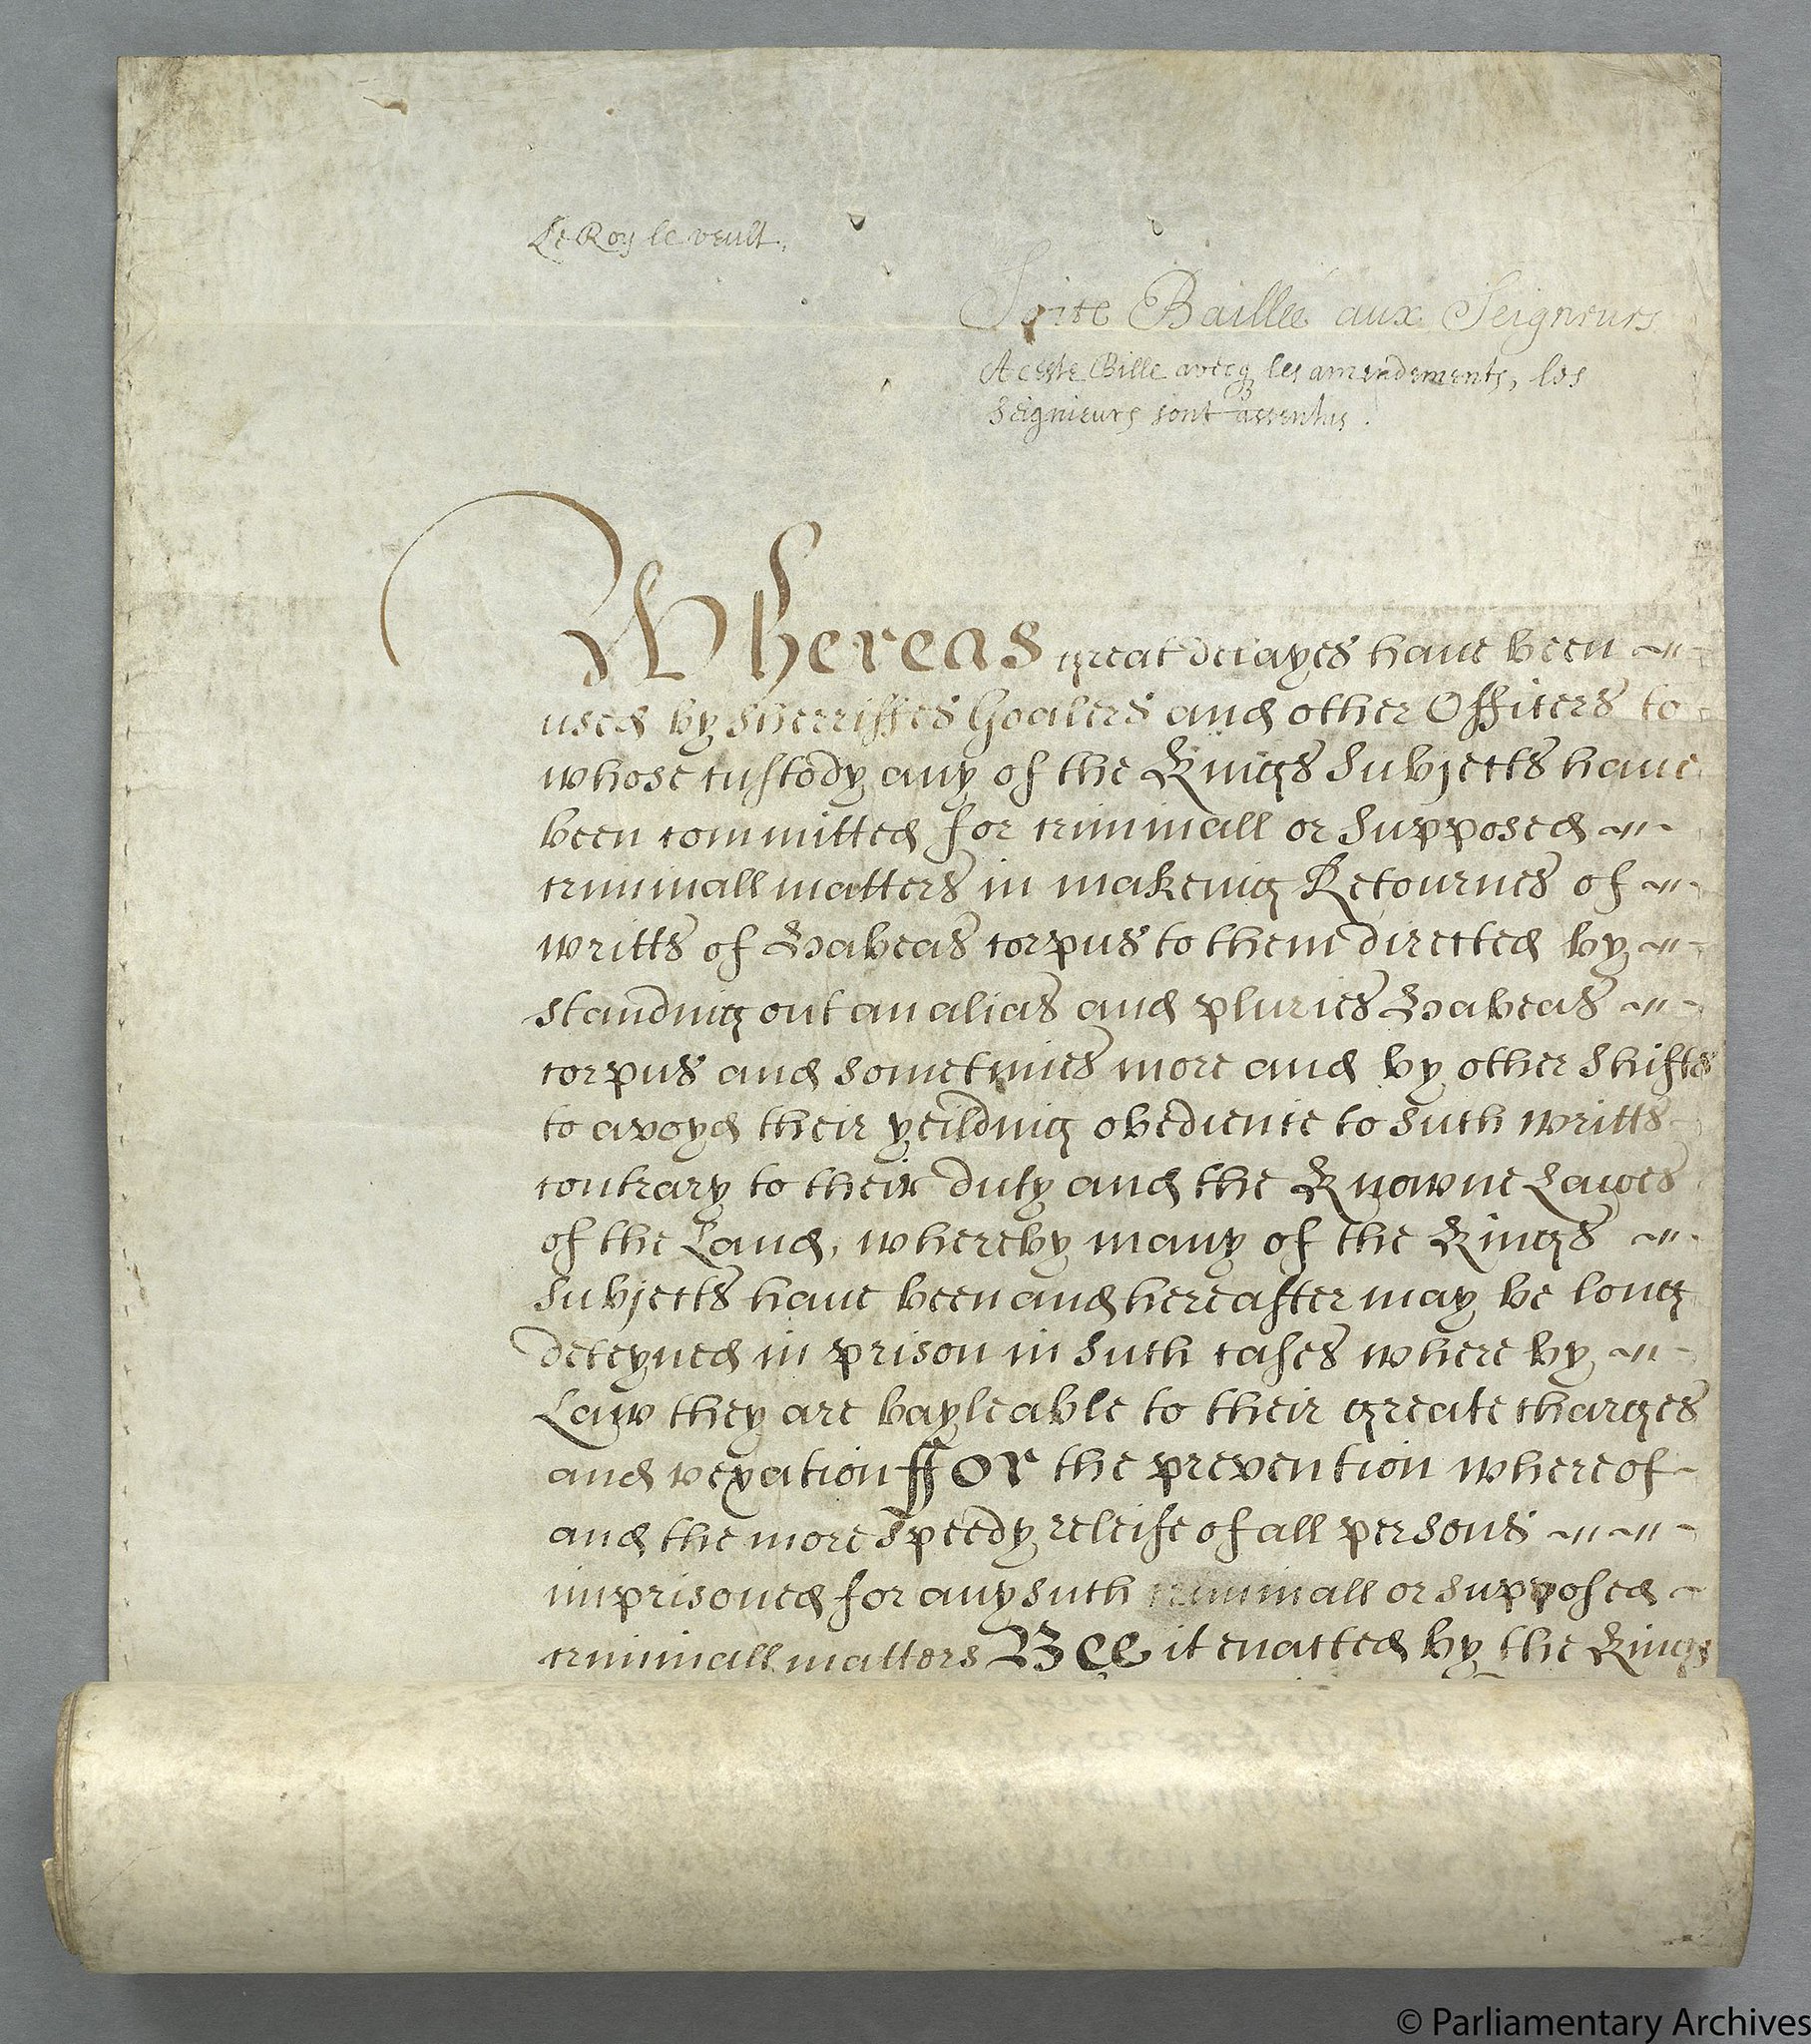 Le Roy le veult.
Soite Baillee aux Seigneurs
A ceste Bille avecq les amendements, les
Seignieurs sont assentus.
Whereas great delayes have been
used by Sherriffes Goalers and other Officers to
whose custody any of the Kings Subjects have
been committed for criminall or Supposed
criminall matters in makeing Retournes of
writts of Habeas corpus to them directed by
standing out an alias and pluries Habeas
corpus and sometimes more and by other Shifts
to avoyd their yeilding obedience to such writts
contrary to their duty and the Knowne Lawes
of the Land, whereby many of the Kings
Subjects have been and hereafter may be long
deteyned in prison in such cases where by
Law they are bayleable to their greate charges
and vexation ffor the prevention whereof
and the more Speedy releife of all persons
imprisoned for any such criminall or supposed
criminall matters Bee it enacted by the Kings
© Parliamentary Archives